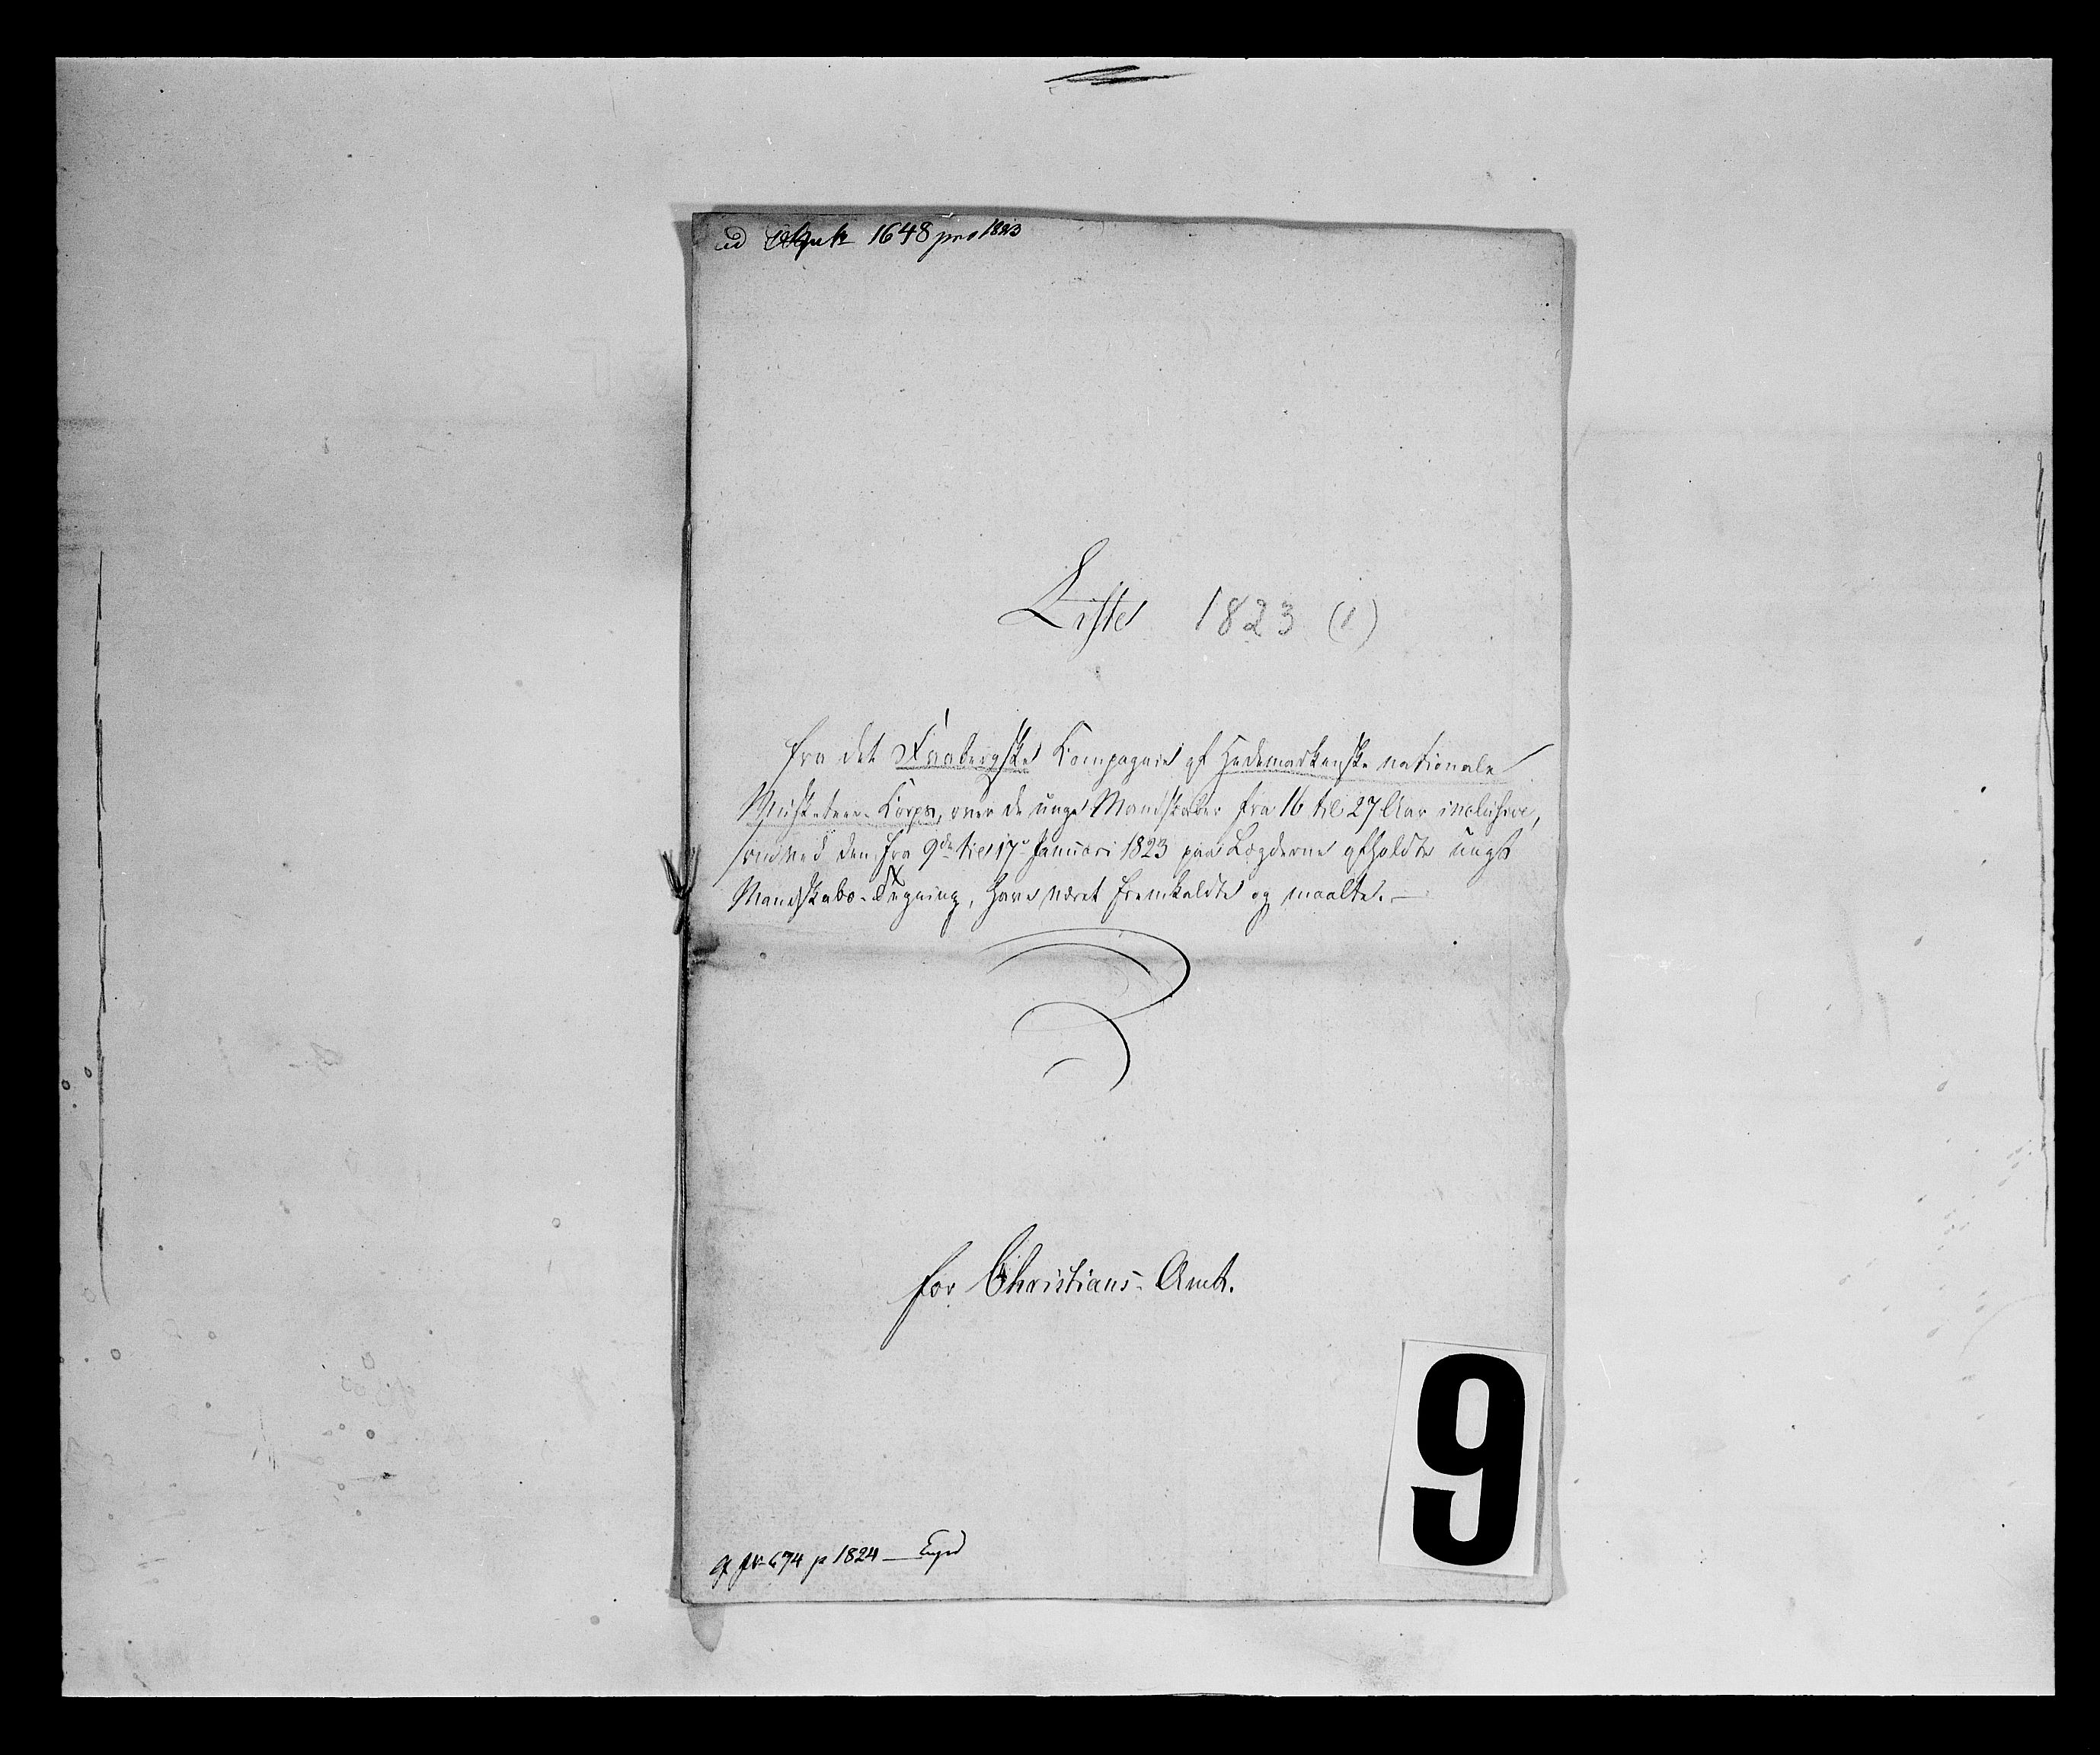 1648 pro 1823
Liste 1823 (1)
fra det Faabergske Compagnie af Hedemarkenske nationale
Musketeer-Corps, over de unge Mandskaber fra 16 til 27 Aar inclusive,
som ved den fra 9de til 17de Januari 1823 paa Lægderne afholdte ungt
Mandskabs-Tegning, have været fremkaldte og maalte.—
for Christians-Amt.
9
674 p 1824 —